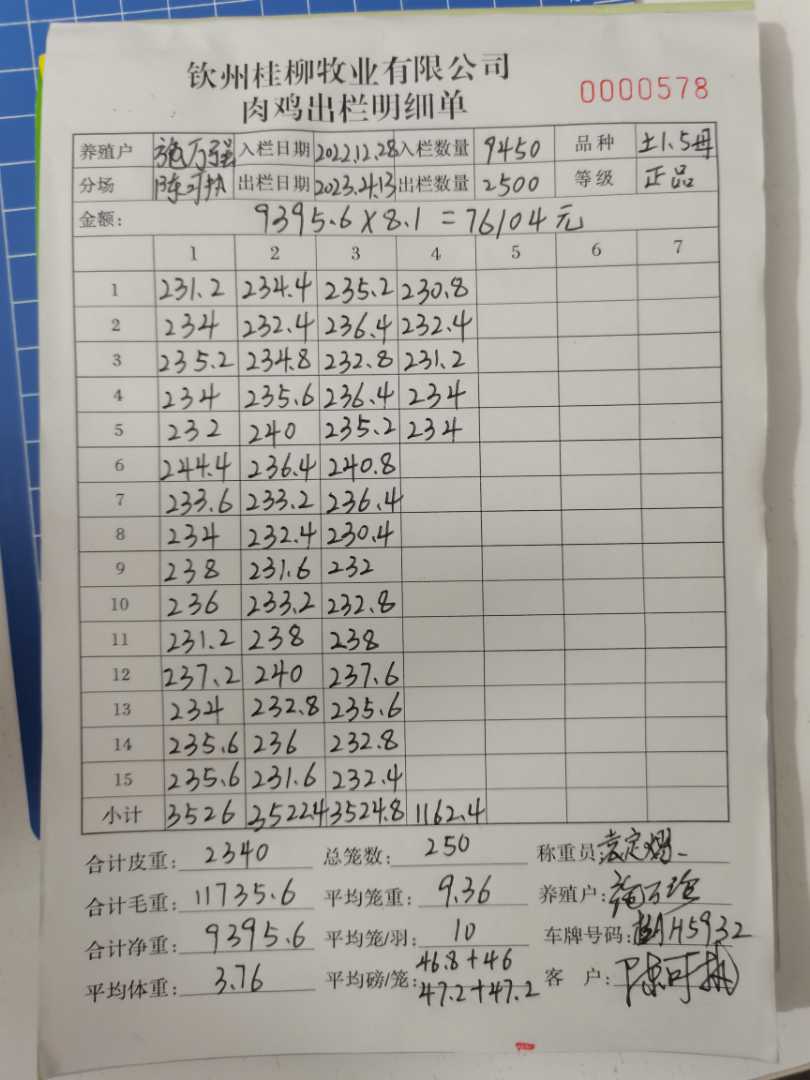 钦州桂柳牧业有限公司
肉鸡出栏明细单 0000578
养殖户 施万强 入栏日期 2022.12.28 入栏数量 9450 品种 土1.5母
分场 陈可执 出栏日期 2023.4.13 出栏数量 2500 等级 正品
金额: 9395.6×8.1=76104元
1 2 3 4 5 6 7
1 231.2 234.4 235.2 230.8
2 234 232.4 236.4 232.4
3 235.2 234.8 232.8 231.2
4 234 235.6 236.4 234
5 232 240 235.2 234
6 244.4 236.4 240.8
7 233.6 233.2 236.4
8 234 232.4 230.4
9 238 231.6 232
10 236 233.2 232.8
11 231.2 238 238
12 237.2 240 237.6
13 234 232.8 235.6
14 235.6 236 232.8
15 235.6 231.6 232.4
小计 3526 3522.4 3524.8 1162.4
合计皮重: 2340 总笼数: 250 称重员:
合计毛重: 11735.6 平均笼重: 9.36 养殖户:
合计净重: 9395.6 平均笼/羽: 10 车牌号码: H5932
平均体重: 3.76 平均磅/笼: 46.8+46 客户: 陈可执
47.2+47.2